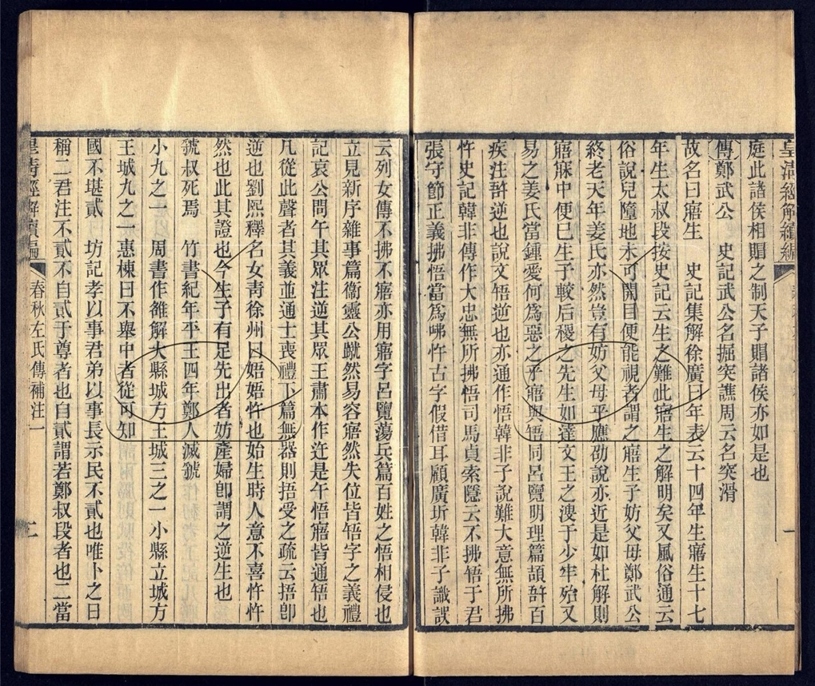 皇清經解續編
庭此諸侯相賵之制天子賵諸侯亦如是也
傳鄭武公　史記武公名掘突譙周云名突滑
故名曰寤生　史記集解徐廣曰年表云十四年生寤生十七
年生太叔段按史記云生之難此寤生之解明矣又風俗通云
俗說兒墮地未可開目便能視者謂之寤生子妨父母鄭武公
終老天年姜氏亦然豈有妨父母乎應劭說亦近是如杜解則
寤寐中便已生子較后稷之先生如達文王之溲于少牢殆又
易之姜氏當鍾愛何爲惡之乎寤與牾同呂覽明理篇頡䛊百
疾注䛊逆也說文牾逆也亦通作悟韓非子說難大意無所拂
忤史記韓非傳作大忠無所拂悟司馬貞索隱云不拂牾于君
張守節正義拂悟當爲咈忤古字假借耳顧廣圻韓非子識誤
云列女傳不拂不寤亦用寤字呂覽蕩兵篇百姓之悟相侵也
立見新序雜事篇衞靈公蹴然易容寤然失位皆牾字之義禮
記哀公問午其眾注逆其眾王肅本作迕是午悟寤皆通牾也
凡從此聲者其義並通士喪禮下篇無器則捂受之疏云捂卽
逆也劉熙釋名女青徐州曰娪娪忤也始生時人意不喜忤忤
然也此其證也今生子有足先出者妨產婦卽謂之逆生也
虢叔死焉　竹書紀年平王四年鄭人滅虢
小九之一　周書作雒解大縣城方王城三之一小縣立城方
王城九之一惠棟曰不舉中者從可知
國不堪貳　坊記孝以事君弟以事長示民不貳也唯卜之日
稱二君注不貳不自貳于尊者也自貳謂若鄭叔段者也二當
皇清經解續編
春秋左氏傳補注一
二